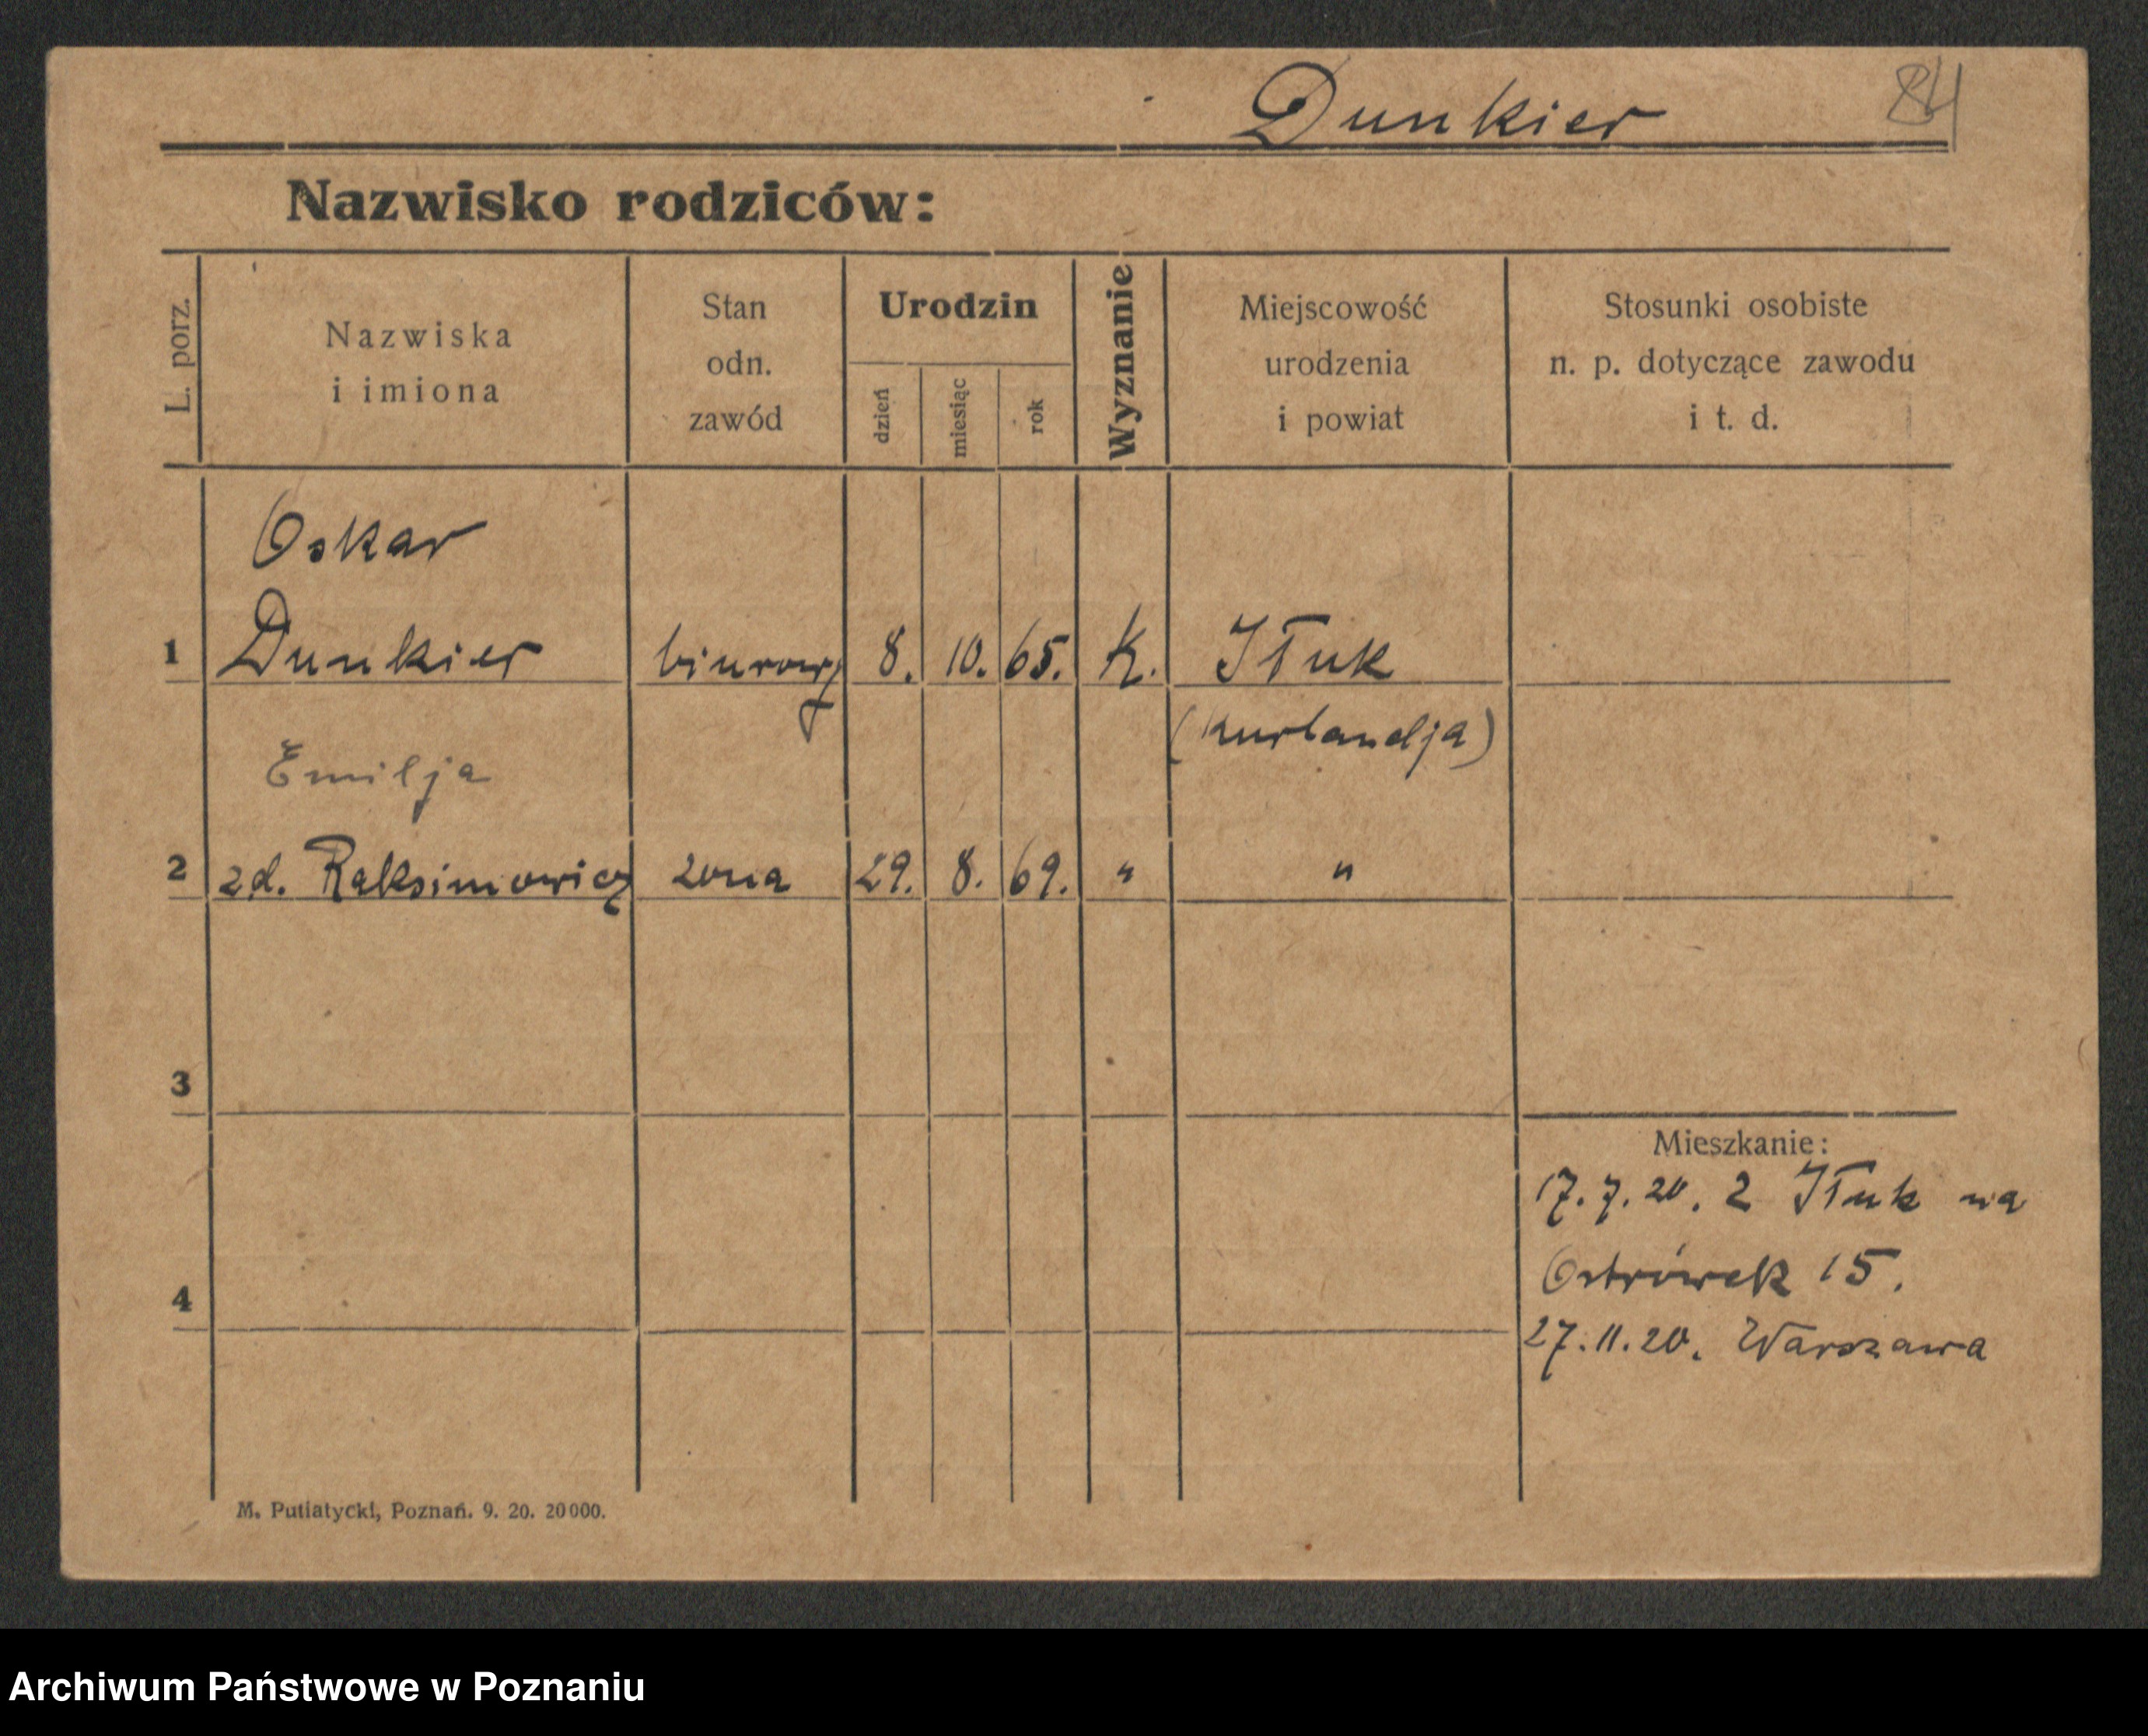 Dunkier 84
Nazwisko rodziców:
L. porz.
Nazwiska
i imiona
Stan
odn.
zawód
Urodzin
dzień
miesiąc
rok
Wyznanie
Miejscowość
urodzenia
i powiat
Stosunki osobiste
n. p. dotyczące zawodu
i t. d.
Oskar
1 Dunkier biurowy 8. 10. 65. K. Iłuk
(Kurlandja)
Emilja
2 zd. Raksimowicz zona 29. 8. 69. " "
3
Mieszkanie:
17. 7. 20. z Iłuk na
Ostrówek 15.
4
27. 11. 20. Warszawa
M. Putiatycki, Poznań. 9. 20. 20000.
Archiwum Państwowe w Poznaniu